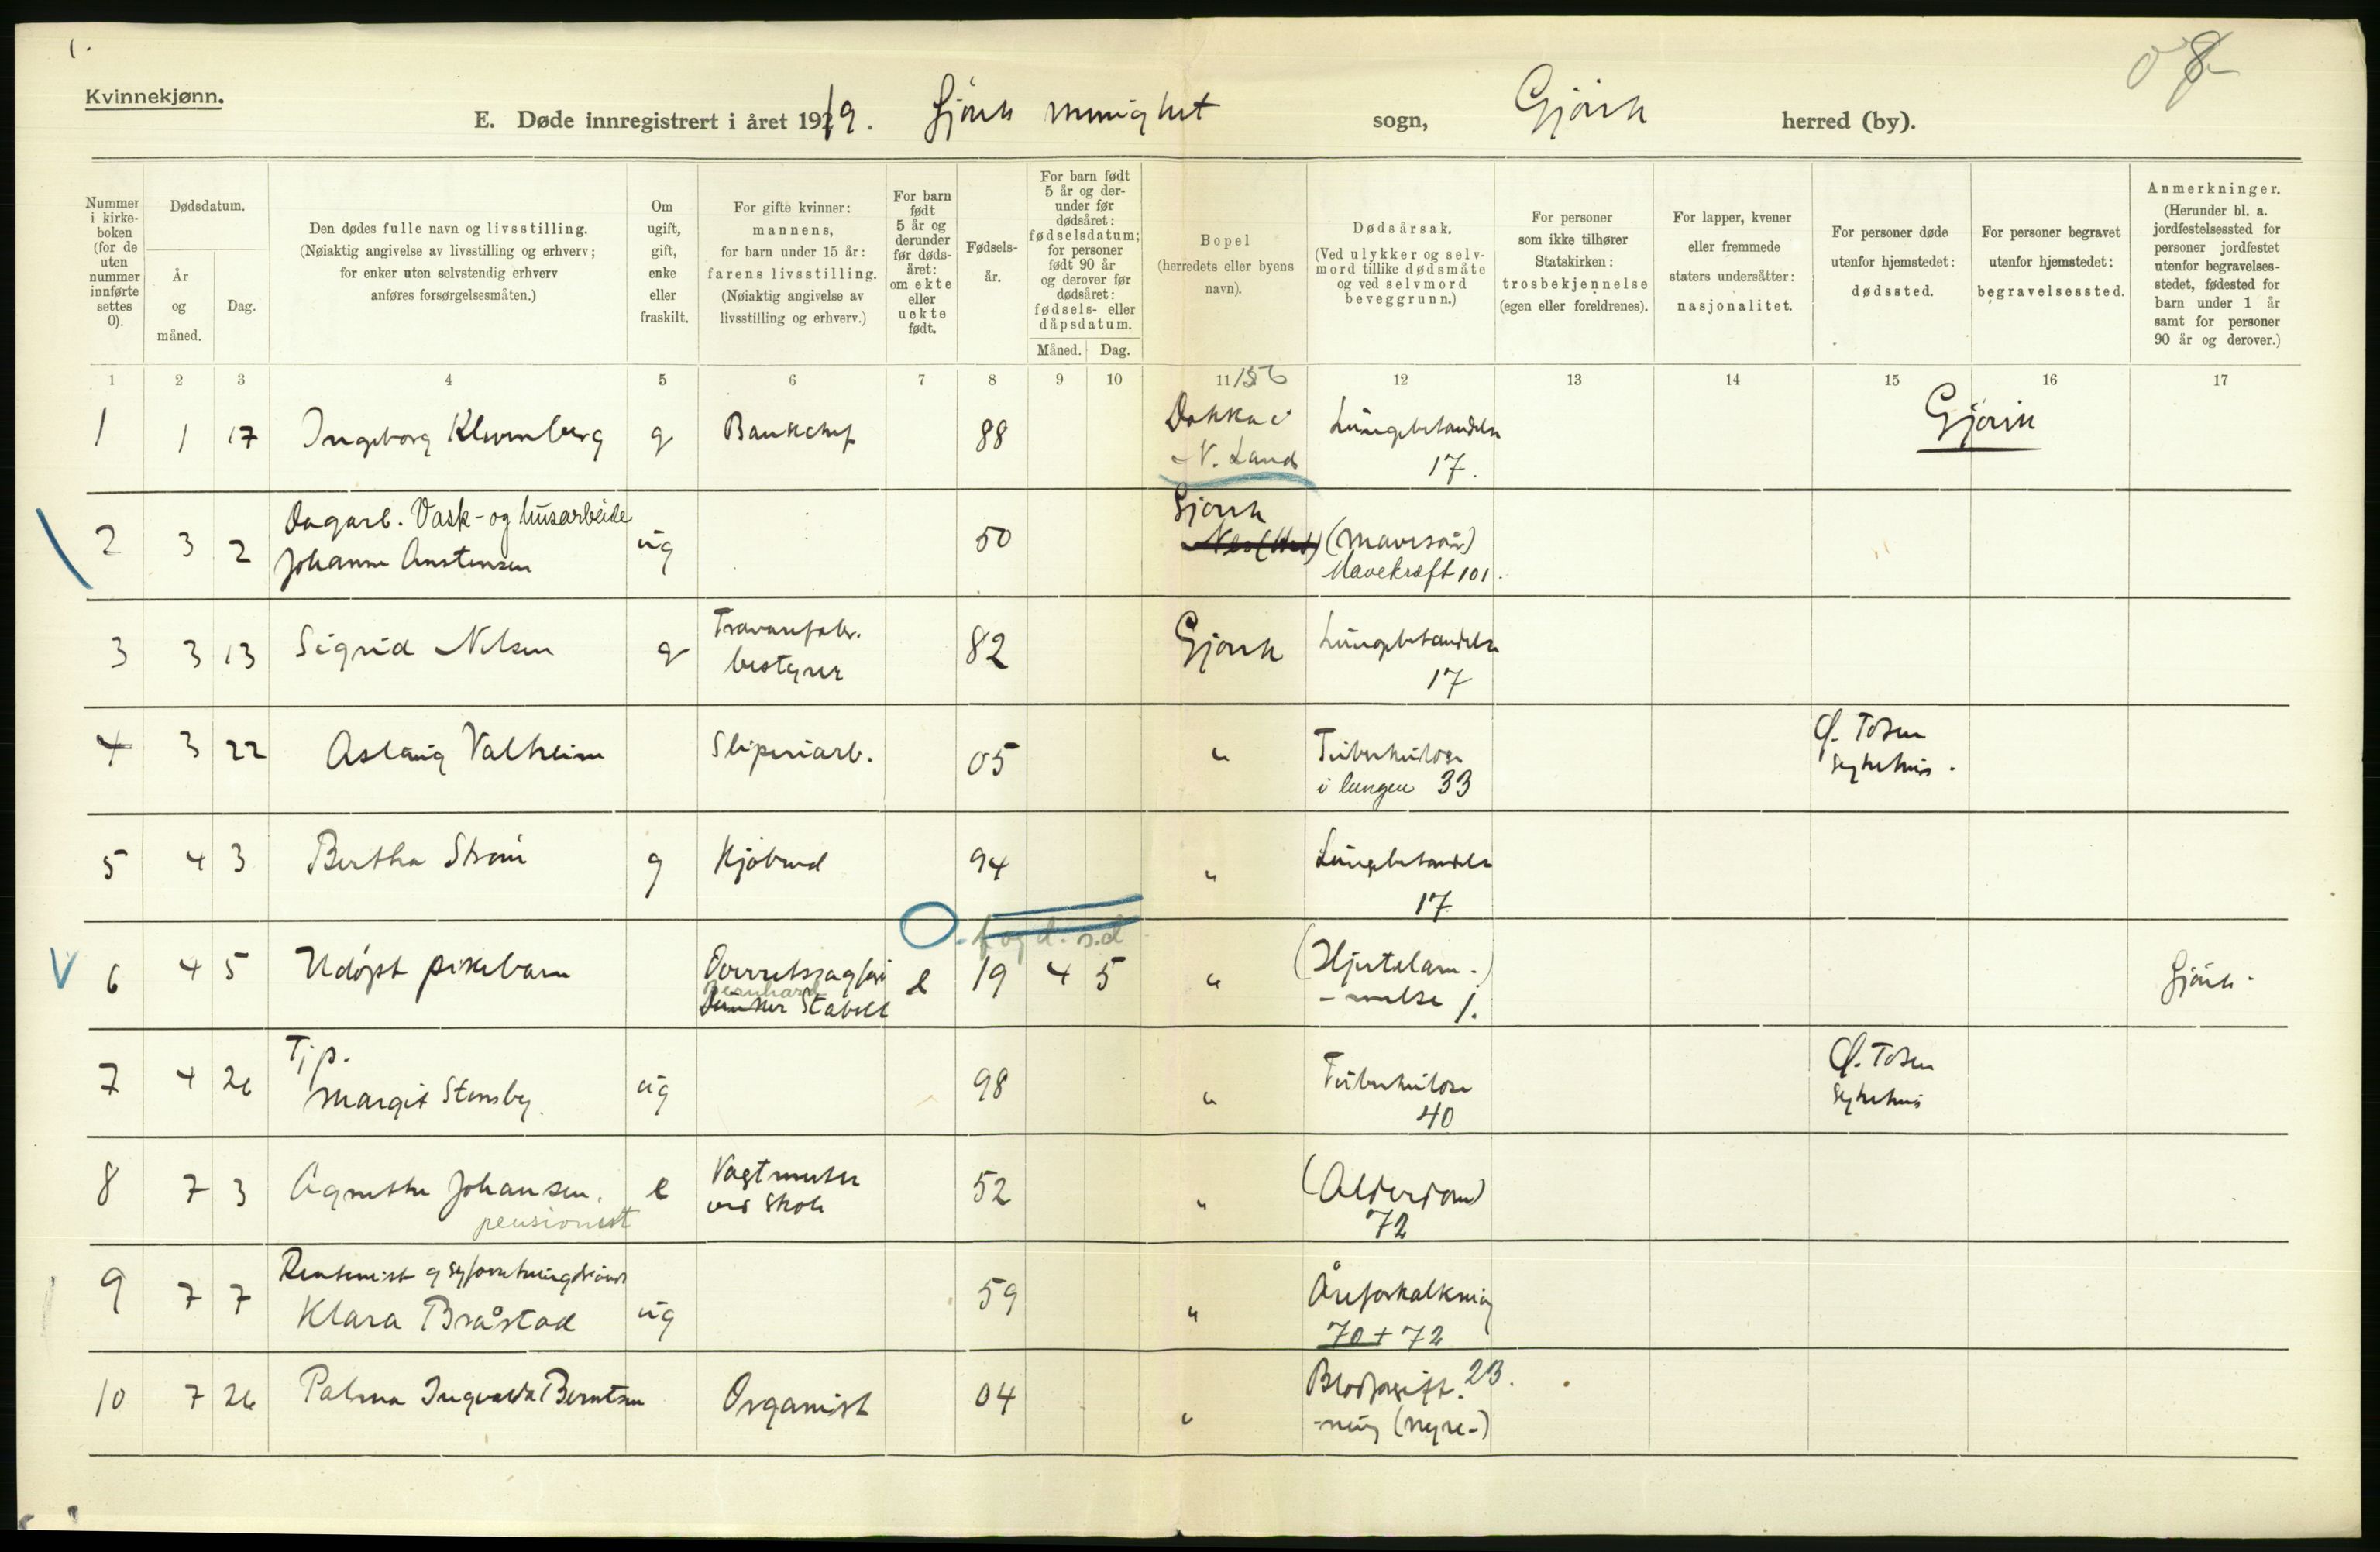 Kvinnekjønn.
E. Døde innregistrert i året 1919. Gjövik menighet sogn, Gjövik herred (by).
Nummer i kirkeboken (for de uten nummer innførte settes 0).
Dødsdatum.
År og måned.
Dag.
Den dødes fulle navn og livsstilling. (Nøiaktig angivelse av livsstilling og erhverv; for enker uten selvstendig erhverv anføres forsørgelsesmåten.)
Om ugift, gift, enke eller fraskilt.
For gifte kvinner: mannens, for barn under 15 år: farens livsstilling. (Nøiaktig angivelse av livsstilling og erhverv.)
For barn født 5 år og derunder før dødsåret: om ekte eller uekte født.
Fødselsår.
For barn født 5 år og derunder før dødsåret: fødselsdatum; for personer født 90 år og derover før dødsåret: fødsels- eller dåpsdatum.
Måned. Dag.
Bopel (herredets eller byens navn).
Dødsårsak. (Ved ulykker og selvmord tillike dødsmåte og ved selvmord beveggrunn.)
For personer som ikke tilhører Statskirken: trosbekjennelse (egen eller foreldrenes).
For lapper, kvener eller fremmede staters undersåtter: nasjonalitet.
For personer døde utenfor hjemstedet: dødssted.
For personer begravet utenfor hjemstedet: begravelsessted.
Anmerkninger. (Herunder bl. a. jordfestelsessted for personer jordfestet utenfor begravelsesstedet, fødested for barn under 1 år samt for personer 90 år og derover.)
1 2 3 4 5 6 7 8 9 10 11 12 13 14 15 16 17
1 1 17 Ingeborg Klevenberg g Bankchef 88 Dokka i N. Land Lungebetændelse 17. Gjövik
2 3 2 Dagarb. Vask- og husarbeide
Johanne Anstensen ug 50 Gjövik (Mavesår) Mavekræft 101.
3 3 13 Sigrid Nilsen g Trævarefabr. bestyrer 82 Gjövik Lungebetændelse 17
4 3 22 Aslaug Valheim Sliperiarb. 05 " Tuberkulose i lungen 33 Ø. Toten sykehus.
5 4 3 Bertha Ström g Kjöbmd 94 " Lungebetændelse 17
f og d. s.d
6 4 5 Udöpt pikebarn Overretssagføri Bernhard Stabell e 19 4 5 " (Hjertelam-melse) 1. Gjövik.
7 4 26 Tjp.
Margit Stensby ug 98 " Tuberkulose 40 Ø. Toten sykehus
8 7 3 Agnethe Johansen. pensionist e Vagtmester ved skole 52 " (Alderdom) 72
9 7 7 Rentenist og
Klara Bråstad ug 59 " Åreforkalkning 70 + 72
10 7 26 Palma Ingvalda Berntsen Organist 04 " Blodforgift-ning (nyre-) 23.